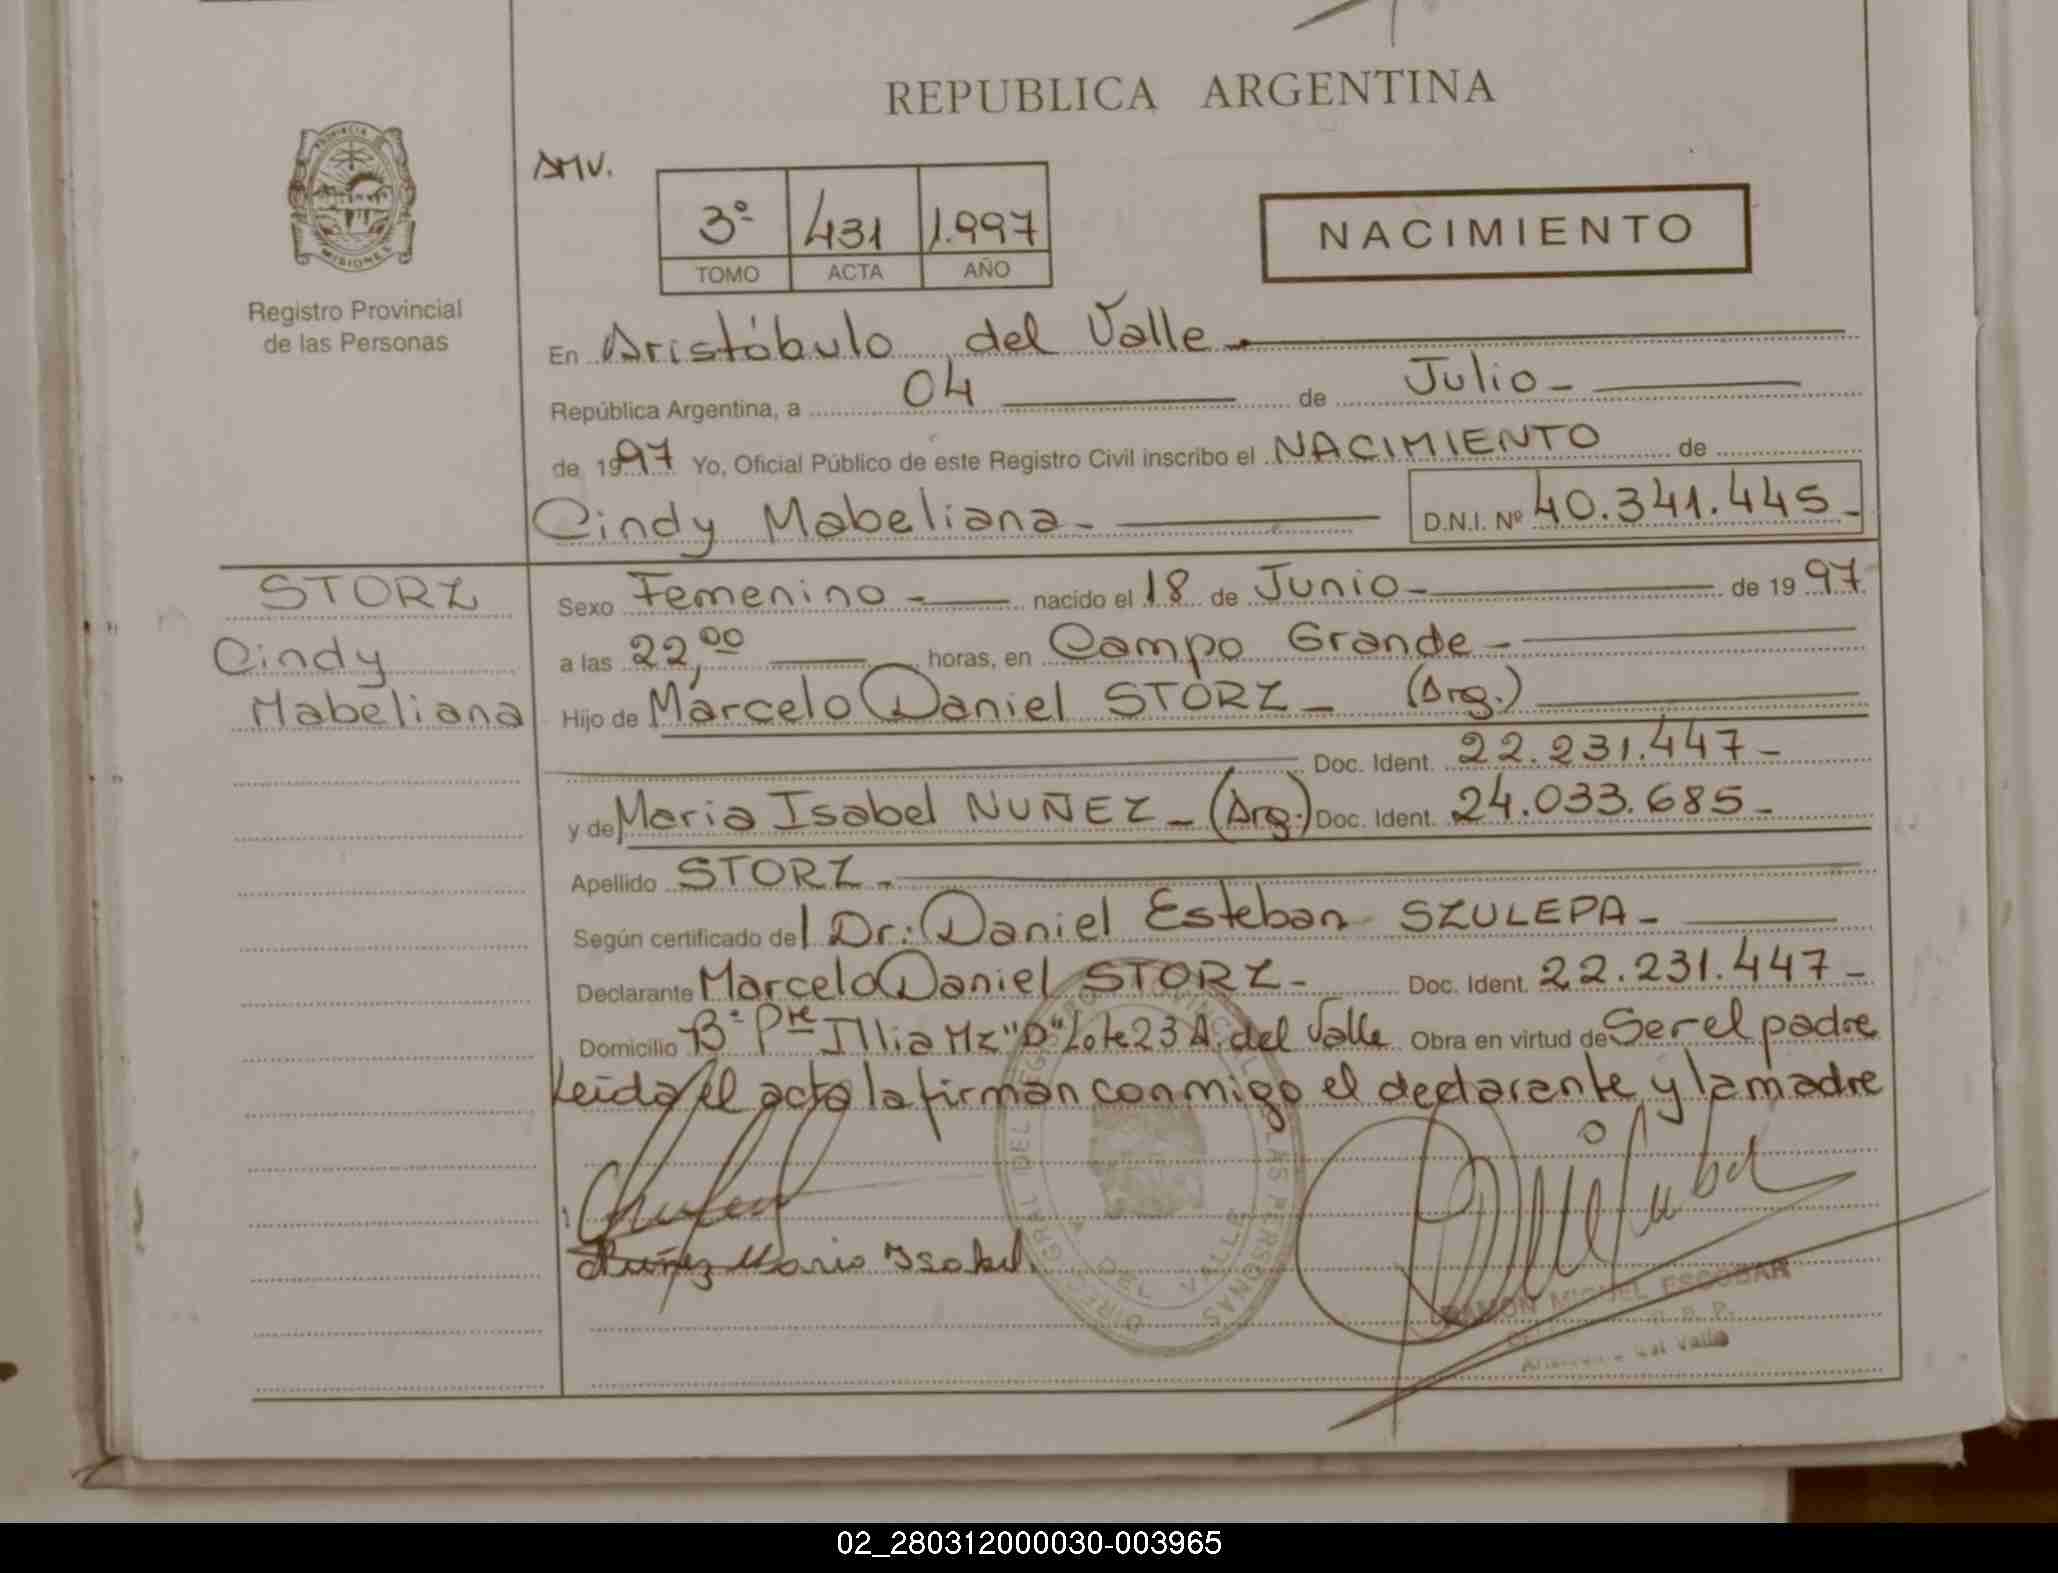 REPUBLICA ARGENTINA
PROVINCIA
MISIONES
Registro Provincial
de las Personas
AMV.
3º 431 1.997
TOMO ACTA AÑO
NACIMIENTO
En Aristóbulo del Valle
República Argentina, a 04 de Julio
de 1997 Yo, Oficial Público de este Registro Civil inscribo el NACIMIENTO de
Cindy Mabeliana D.N.I. Nº 40.341.445
STORZ
Cindy
Mabeliana
Sexo Femenino nacido el 18 de Junio de 1997
a las 22,00 horas, en Campo Grande
Hijo de Marcelo Daniel STORZ (Arg.)
Doc. Ident. 22.231.447
y de Maria Isabel NUÑEZ (Arg.) Doc. Ident. 24.033.685
Apellido STORZ
Según certificado del Dr: Daniel Esteban SZULEPA
Declarante Marcelo Daniel STORZ Doc. Ident. 22.231.447
Domicilio Bº Pte Illia Mz "D" Lote 23 A. del Valle Obra en virtud de Ser el padre
Leida el acta la firman conmigo el declarante y la madre
Nuñez Maria Isabel
RAMON MIGUEL ESCOBAR
del Valle
DEL VALLE
02_280312000030-003965